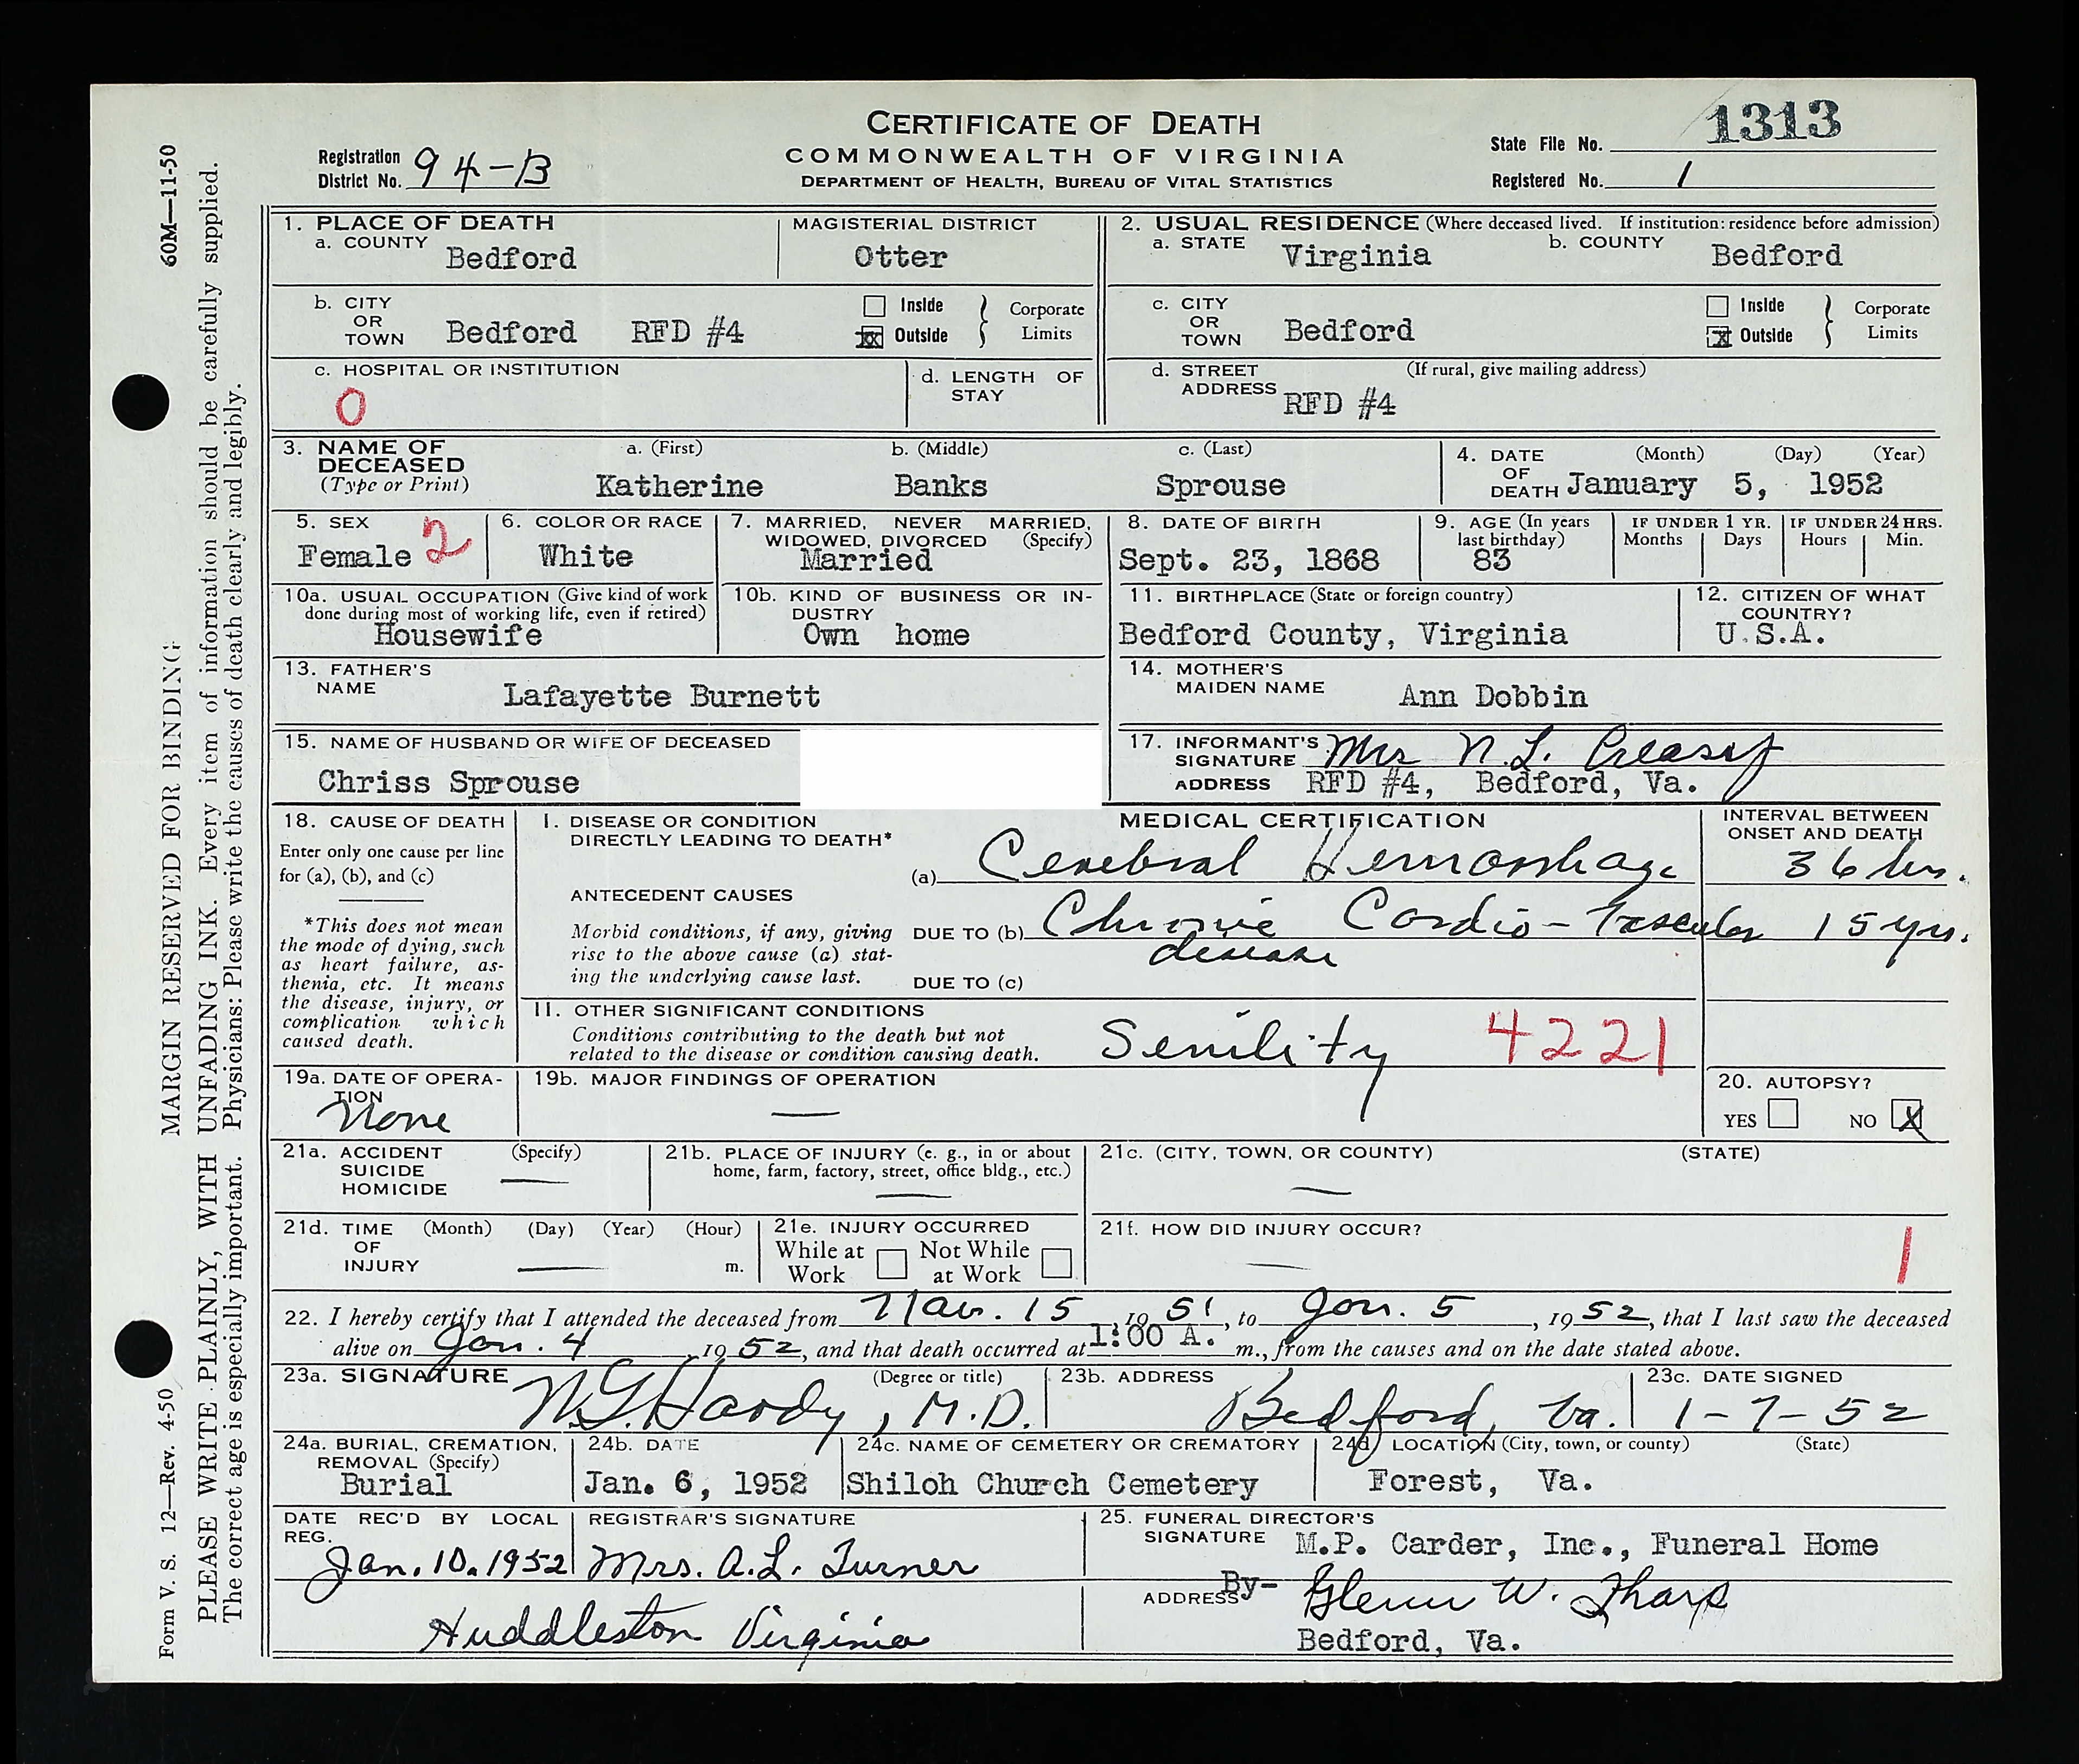 CERTIFICATE OF DEATH
COMMONWEALTH OF VIRGINIA
DEPARTMENT OF HEALTH, BUREAU OF VITAL STATISTICS
Registration District No. 94-B
State File No. 1313
Registered No. 1
60M—11-50
MARGIN RESERVED FOR BINDING
PLEASE WRITE PLAINLY, WITH UNFADING INK. Every item of information should be carefully supplied.
The correct age is especially important. Physicians: Please write the causes of death clearly and legibly.
Form V. S. 12—Rev. 4-50
1. PLACE OF DEATH
a. COUNTY Bedford
MAGISTERIAL DISTRICT Otter
2. USUAL RESIDENCE (Where deceased lived. If institution: residence before admission)
a. STATE Virginia b. COUNTY Bedford
b. CITY OR TOWN Bedford RFD #4
Inside
xx Outside
Corporate Limits
c. CITY OR TOWN Bedford
Inside
x Outside
Corporate Limits
c. HOSPITAL OR INSTITUTION
0
d. LENGTH OF STAY
d. STREET ADDRESS (If rural, give mailing address)
RFD #4
3. NAME OF DECEASED (Type or Print)
a. (First) b. (Middle) c. (Last)
Katherine Banks Sprouse
4. DATE OF DEATH (Month) (Day) (Year)
January 5, 1952
5. SEX
Female 2
6. COLOR OR RACE
White
7. MARRIED, NEVER MARRIED, WIDOWED, DIVORCED (Specify)
Married
8. DATE OF BIRTH
Sept. 23, 1868
9. AGE (In years last birthday)
83
IF UNDER 1 YR.
Months Days
IF UNDER 24 HRS.
Hours Min.
10a. USUAL OCCUPATION (Give kind of work done during most of working life, even if retired)
Housewife
10b. KIND OF BUSINESS OR INDUSTRY
Own home
11. BIRTHPLACE (State or foreign country)
Bedford County, Virginia
12. CITIZEN OF WHAT COUNTRY?
U.S.A.
13. FATHER'S NAME
Lafayette Burnett
14. MOTHER'S MAIDEN NAME
Ann Dobbin
15. NAME OF HUSBAND OR WIFE OF DECEASED
Chriss Sprouse
17. INFORMANT'S SIGNATURE Mrs N. L. Creasy
ADDRESS RFD #4, Bedford, Va.
18. CAUSE OF DEATH
Enter only one cause per line for (a), (b), and (c)
*This does not mean the mode of dying, such as heart failure, asthenia, etc. It means the disease, injury, or complication which caused death.
MEDICAL CERTIFICATION
INTERVAL BETWEEN ONSET AND DEATH
I. DISEASE OR CONDITION DIRECTLY LEADING TO DEATH*
(a) Cerebral Hemorrhage 36 hrs.
ANTECEDENT CAUSES
Morbid conditions, if any, giving rise to the above cause (a) stating the underlying cause last.
DUE TO (b) Chronic Cardio-Vascular disease 15 yrs.
DUE TO (c)
II. OTHER SIGNIFICANT CONDITIONS
Conditions contributing to the death but not related to the disease or condition causing death.
Senility 4221
19a. DATE OF OPERATION
None
19b. MAJOR FINDINGS OF OPERATION
—
20. AUTOPSY?
YES NO X
21a. ACCIDENT SUICIDE HOMICIDE (Specify)
—
21b. PLACE OF INJURY (e. g., in or about home, farm, factory, street, office bldg., etc.)
—
21c. (CITY, TOWN, OR COUNTY) (STATE)
—
21d. TIME OF INJURY (Month) (Day) (Year) (Hour) m.
—
21e. INJURY OCCURRED
While at Work Not While at Work
21f. HOW DID INJURY OCCUR?
— 1
22. I hereby certify that I attended the deceased from Nov. 15, 1951, to Jan. 5, 1952, that I last saw the deceased
alive on Jan. 4, 1952, and that death occurred at 1:00 A. m., from the causes and on the date stated above.
23a. SIGNATURE (Degree or title)
N.G. Hardy, M.D.
23b. ADDRESS
Bedford, Va.
23c. DATE SIGNED
1-7-52
24a. BURIAL, CREMATION, REMOVAL (Specify)
Burial
24b. DATE
Jan. 6, 1952
24c. NAME OF CEMETERY OR CREMATORY
Shiloh Church Cemetery
24d. LOCATION (City, town, or county) (State)
Forest, Va.
DATE REC'D BY LOCAL REG.
Jan. 10. 1952
REGISTRAR'S SIGNATURE
Mrs. A.L. Turner
Huddleston Virginia
25. FUNERAL DIRECTOR'S SIGNATURE M.P. Carder, Inc., Funeral Home
By- Glenn W. Tharp
ADDRESS Bedford, Va.